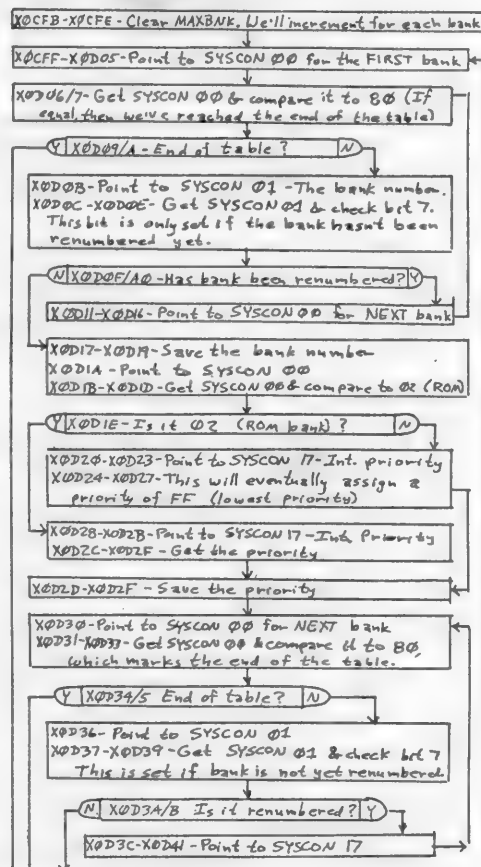 XØCFB-XØCFE-Clear MAXBNK. We'll increment for each bank
XØCFF-XØD05-Point to SYSCON ØØ for the FIRST bank
XØD06/7-Get SYSCON ØØ & compare it to 8Ø (If
equal, then we've reached the end of the table)
Y XØD09/A-End of table? N
XØDØB-Point to SYSCON Ø1-The bank number.
XØDØC-XØDØE-Get SYSCON Ø1 & check bit 7.
This bit is only set if the bank hasn't been
renumbered yet.
N XØDØF/AØ-Has bank been renumbered? Y
XØD11-XØD16-Point to SYSCON ØØ for NEXT bank
XØD17-XØD19-Save the bank number
XØD1A-Point to SYSCON ØØ
XØD1B-XØD1D-Get SYSCON ØØ & compare to Ø2 (ROM)
Y XØD1E-Is it Ø2 (ROM bank)? N
XØD2Ø-XØD23-Point to SYSCON 17-Int. priority
XØD24-XØD27-This will eventually assign a
priority of FF (lowest priority)
XØD28-XØD2B-Point to SYSCON 17-Int. Priority
XØD2C-XØD2F-Get the priority
XØD2D-XØD2F-Save the priority
XØD3Ø-Point to SYSCON ØØ for NEXT bank
XØD31-XØD33-Get SYSCON ØØ & compare it to 8Ø,
which marks the end of the table.
Y XØD34/5 End of table? N
XØD36-Point to SYSCON Ø1
XØD37-XØD39-Get SYSCON Ø1 & check bit 7
This is set if bank is not yet renumberd.
N XØD3A/B Is it renumbered? Y
XØD3C-XØD41-Point to SYSCON 17